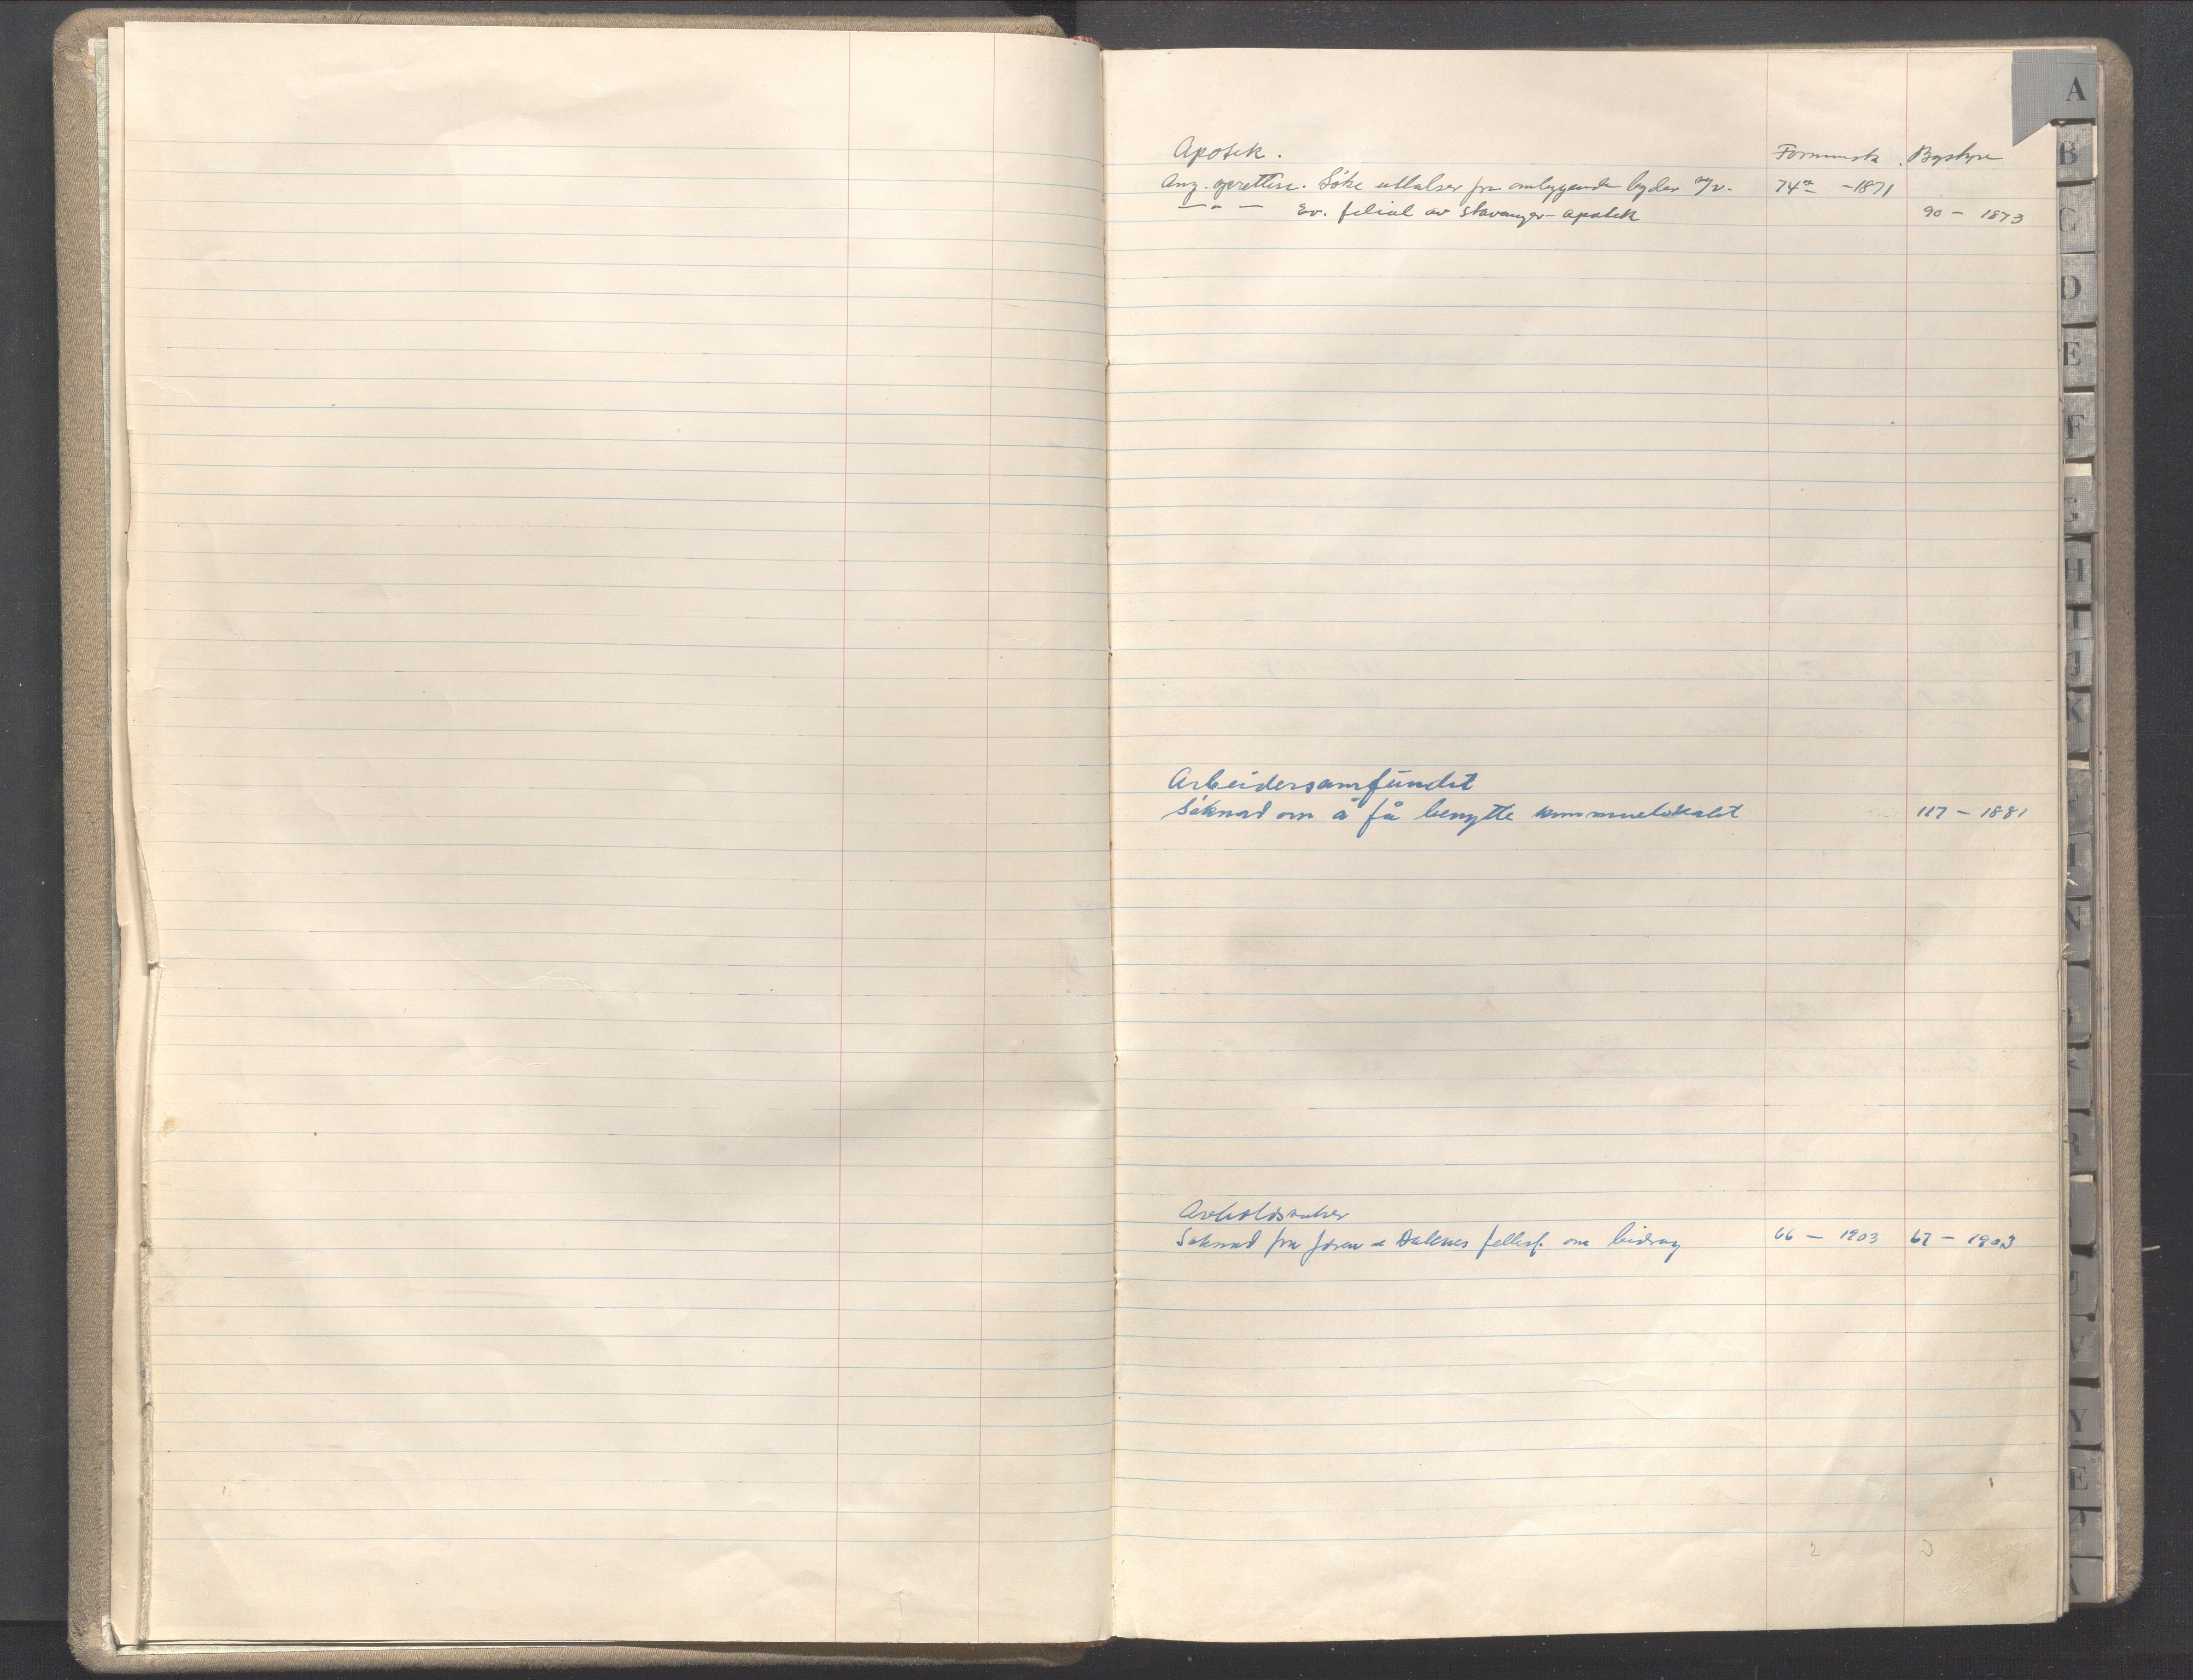 A
Apotek. Formannsk. Bystyre
Ang. oprettelse. Söke uttalelser fra omliggende bygder 74 - 1871
— " — Ev. filial av Stavanger-apotek 90 - 1873
Arbeidersamfundet
Söknad om å få benytte kommunelokalet 117 - 1881
Avholdssaker
Söknad fra Jæren Dalenes fellesf. om bidrag 66 - 1903 67 - 1903
2 3
B
C
D
E
F
G
H
I
J
K
N
R
V
Y